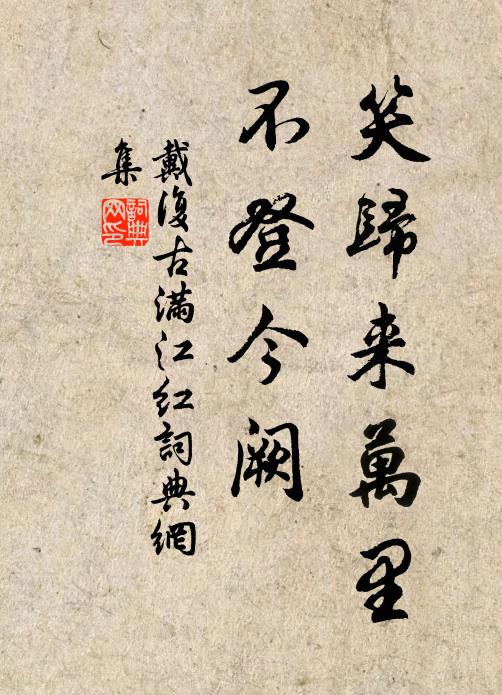 笑歸来萬里
不登今闕
戴復古滿江紅詞典網
集
詞典
网印